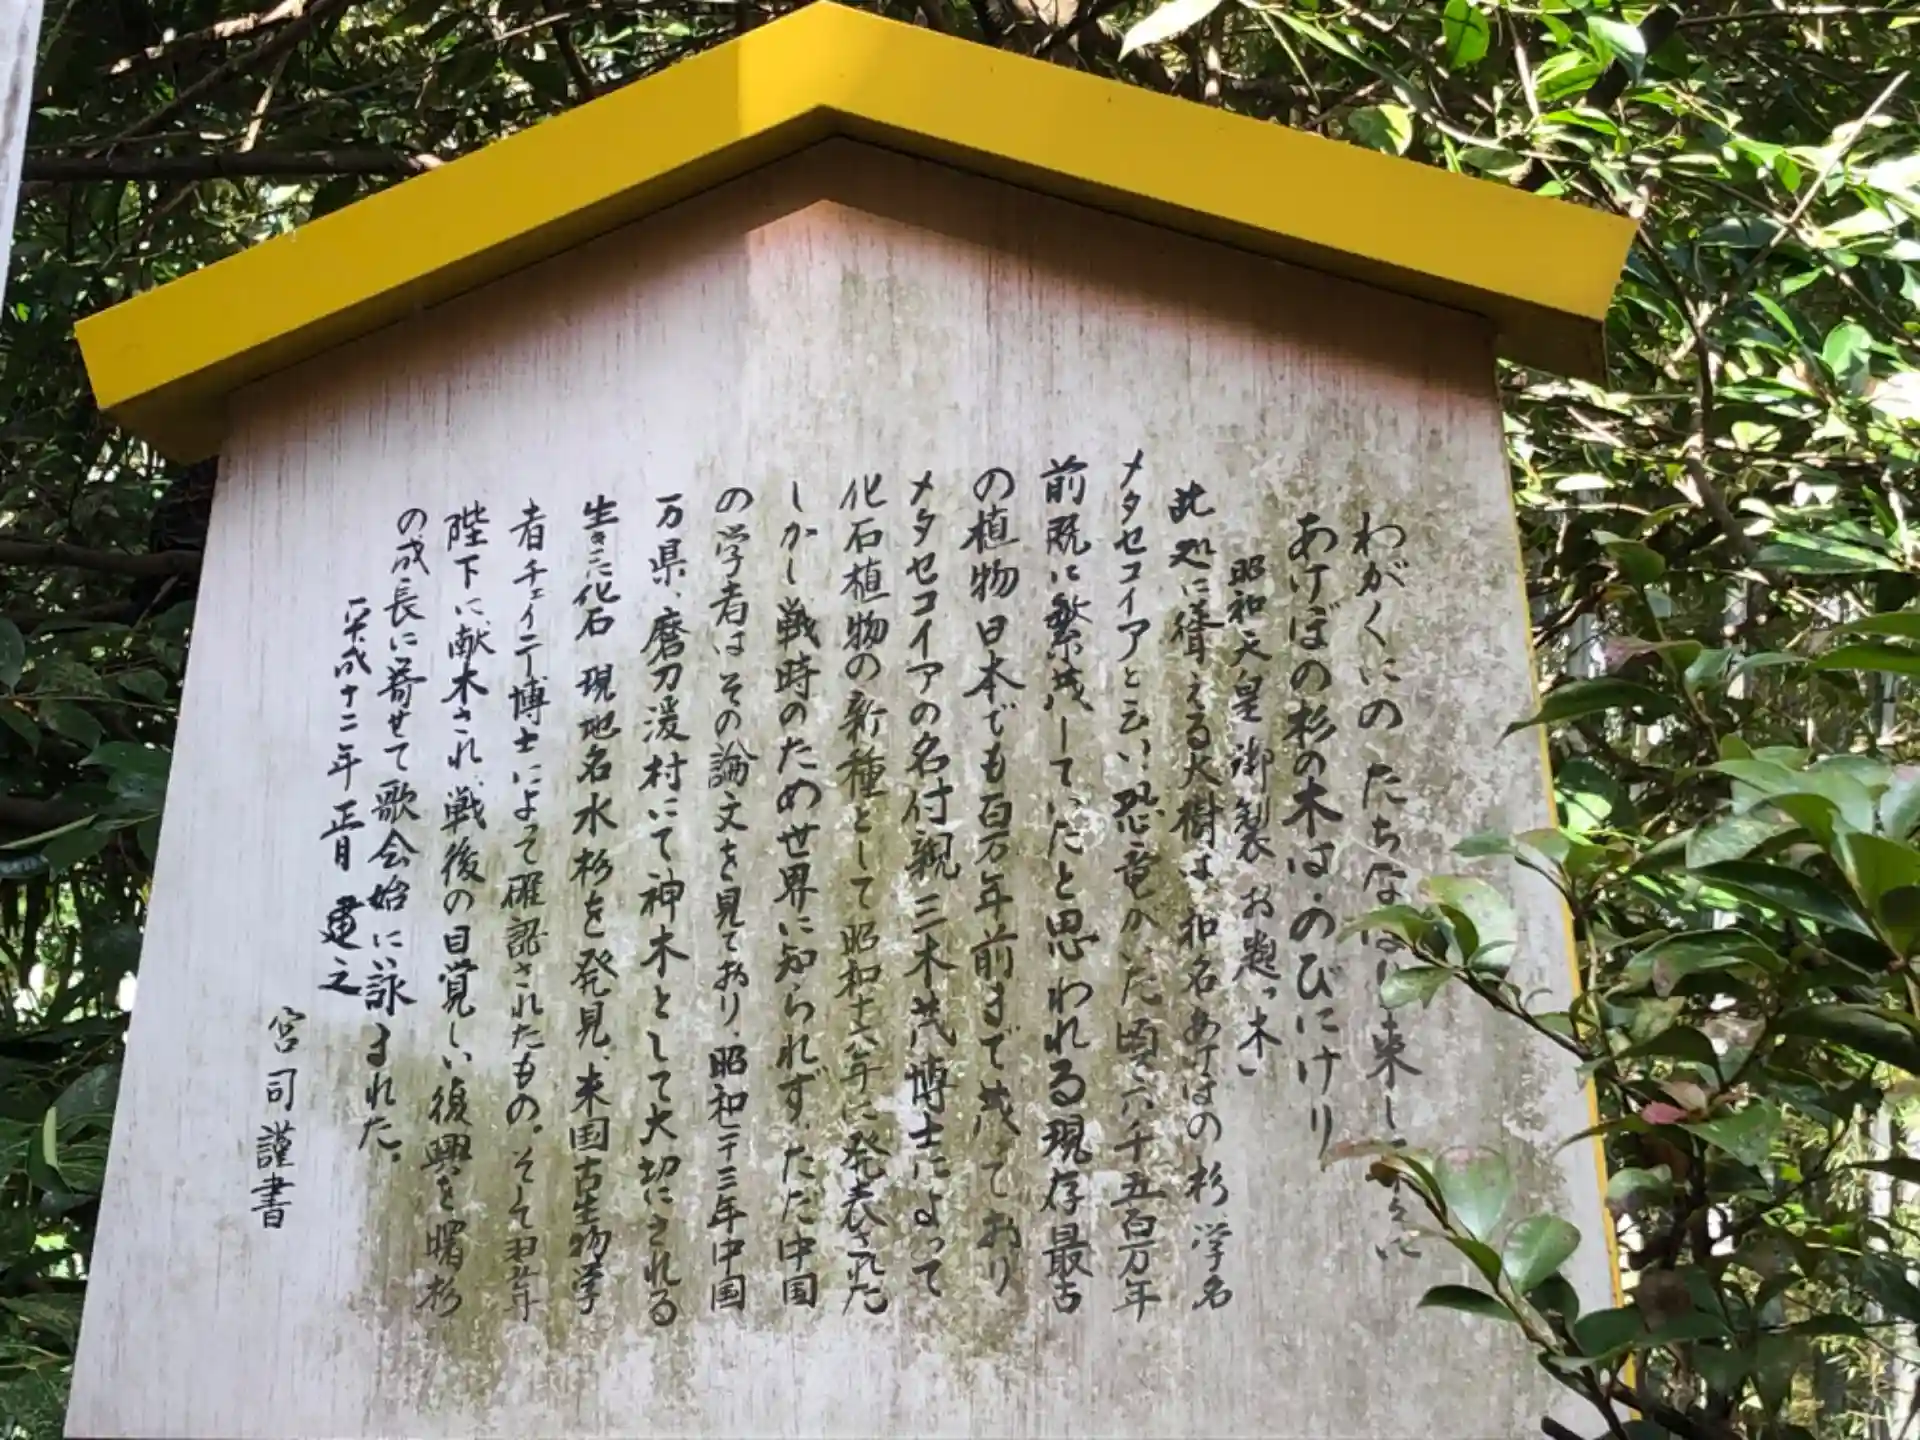 わがくにの たちなほり来し
あけぼの杉の木は・のびにけり
昭和天皇御製 お題「木」
此処に聳える大樹は 和名あけぼの杉 学名
メタセコイアと云い 恐竜がいた頃で六千五百万年
前既に繁茂していたと思われる現存最古
の植物 日本でも百万年前まで茂っており
メタセコイアの名付親 三木茂博士によって
化石植物の新種として昭和十六年に発表された
しかし戦時のため世界に知られず、ただ中国
の学者はその論文を見ており、昭和二十三年中国
万県、磨刀渓村にて神木として大切にされる
生きた化石 現地名水杉を発見、米国古生物学
者チェイニー博士によって確認されたもの。そして翌年
陛下に献木され、戦後の目覚しい復興を曙杉
の成長に寄せて歌会始に詠まれた。
平成十二年 正月 建之
宮司謹書